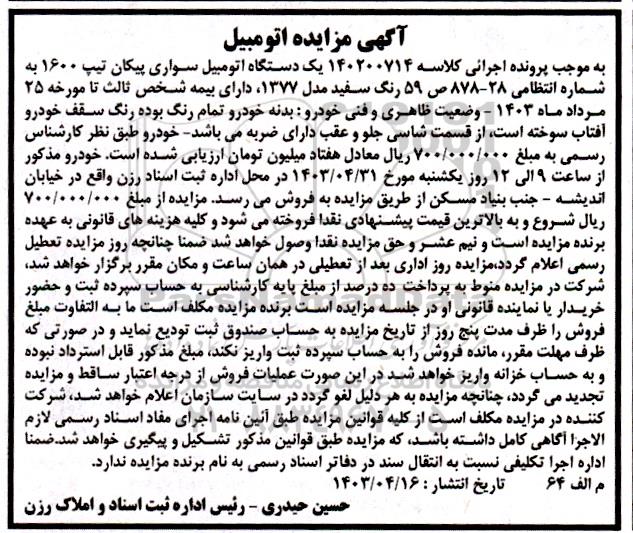 آگهی مزایده اتومبیل
به موجب پرونده اجرائی کلاسه ۱۴۰۲۰۰۷۱۴ یک دستگاه اتومبیل سواری پیکان تیپ ۱۶۰۰ به
شماره انتظامی ۲۸-۸۷۸ ص ۵۹ رنگ سفید مدل ۱۳۷۷، دارای بیمه شخص ثالث تا مورخه ۲۵
مرداد ماه ۱۴۰۳ - وضعیت ظاهری و فنی خودرو: بدنه خودرو تمام رنگ بوده رنگ سقف خودرو
آفتاب سوخته است، از قسمت شاسی جلو و عقب دارای ضربه می باشد- خودرو طبق نظر کارشناس
رسمی به مبلغ ۷۰۰/۰۰۰/۰۰۰ ریال معادل هفتاد میلیون تومان ارزیابی شده است. خودرو مذکور
از ساعت ۹ الی ۱۲ روز یکشنبه مورخ ۱۴۰۳/۰۴/۳۱ در محل اداره ثبت اسناد رزن واقع در خیابان
اندیشه - جنب بنیاد مسکن از طریق مزایده به فروش می رسد. مزایده از مبلغ ۷۰۰/۰۰۰/۰۰۰
ریال شروع و به بالاترین قیمت پیشنهادی نقدا فروخته می شود و کلیه هزینه های قانونی به عهده
برنده مزایده است و نیم عشر و حق مزایده نقدا وصول خواهد شد ضمنا چنانچه روز مزایده تعطیل
رسمی اعلام گردد،مزایده روز اداری بعد از تعطیلی در همان ساعت و مکان مقرر برگزار خواهد شد،
شرکت در مزایده منوط به پرداخت ده درصد از مبلغ پایه کارشناسی به حساب سپرده ثبت و حضور
خریدار یا نماینده قانونی او در جلسه مزایده است برنده مزایده مکلف است ما به التفاوت مبلغ
فروش را ظرف مدت پنج روز از تاریخ مزایده به حساب صندوق ثبت تودیع نماید و در صورتی که
ظرف مهلت مقرر، مانده فروش را به حساب سپرده ثبت واریز نکند، مبلغ مذکور قابل استرداد نبوده
و به حساب خزانه واریز خواهد شد. در این صورت عملیات فروش از درجه اعتبار ساقط و مزایده
تجدید می گردد، چنانچه مزایده به هر دلیل لغو گردد در سایت سازمان اعلام خواهد شد، شرکت
کننده در مزایده مکلف است از کلیه قوانین مزایده طبق آئین نامه اجرای مفاد اسناد رسمی لازم
الاجرا آگاهی کامل داشته باشد، که مزایده طبق قوانین مذکور تشکیل و پیگیری خواهد شد.ضمنا
اداره اجرا تکلیفی نسبت به انتقال سند در دفاتر اسناد رسمی به نام برنده مزایده ندارد.
م الف ۶۴ تاریخ انتشار : ۱۴۰۳/۰۴/۱۶
حسین حیدری - رئیس اداره ثبت اسناد و املاک رزن
ParsNamadData